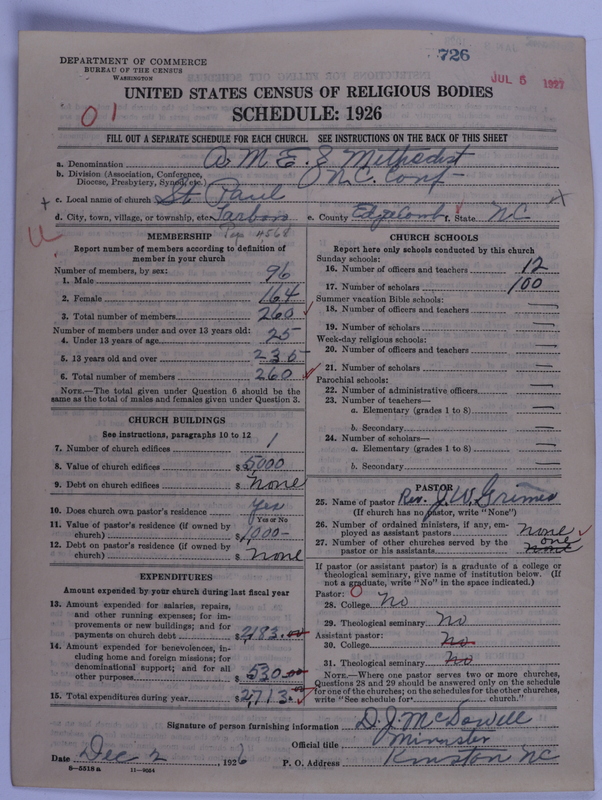 726
JUL 5 1927
DEPARTMENT OF COMMERCE
BUREAU OF THE CENSUS
WASHINGTON
UNITED STATES CENSUS OF RELIGIOUS BODIES
SCHEDULE: 1926
01
FILL OUT A SEPARATE SCHEDULE FOR EACH CHURCH. SEE INSTRUCTIONS ON THE BACK OF THIS SHEET
a. Denomination A M E Z Methodist
b. Division (Association, Conference, Diocese, Presbytery, Synod, etc.) N.C. Conf
c. Local name of church St Paul
d. City, town, village, or township, etc. Tarboro e. County Edgecomb f. State NC
MEMBERSHIP
Report number of members according to definition of
member in your church
Number of members, by sex:
1. Male 96
2. Female 164
3. Total number of members 260
Number of members under and over 13 years old:
4. Under 13 years of age 25
5. 13 years old and over 235
6. Total number of members 260
NOTE.—The total given under Question 6 should be
same as the total of males and females given under Question 3.
CHURCH BUILDINGS
See instructions, paragraphs 10 to 12
7. Number of church edifices 1
8. Value of church edifices $ 5000
9. Debt on church edifices $ None
10. Does church own pastor's residence? Yes
Yes or No
11. Value of pastor's residence (if owned by
church) $ 1000-
12. Debt on pastor's residence (if owned by
church) $ None
EXPENDITURES
Amount expended by your church during last fiscal year
13. Amount expended for salaries, repairs,
and other running expenses; for im-
provements or new buildings; and for
payments on church debt $ 2183.00
14. Amount expended for benevolences, in-
cluding home and foreign missions; for
denominational support; and for all
other purposes $ 530.00
15. Total expenditures during year $ 2713.00
CHURCH SCHOOLS
Report here only schools conducted by this church
Sunday schools:
16. Number of officers and teachers 12
17. Number of scholars 100
Summer vacation Bible schools:
18. Number of officers and teachers —
19. Number of scholars —
Week-day religious schools:
20. Number of officers and teachers —
21. Number of scholars —
Parochial schools:
22. Number of administrative officers —
23. Number of teachers—
a. Elementary (grades 1 to 8) —
b. Secondary —
24. Number of scholars—
a. Elementary (grades 1 to 8) —
b. Secondary —
PASTOR
25. Name of pastor Rev. J. W. Grimes
(If church has no pastor, write "None")
26. Number of ordained ministers, if any, em-
ployed as assistant pastors None
27. Number of other churches served by the one
pastor or his assistants None
If pastor (or assistant pastor) is a graduate of a college or
theological seminary, give name of institution below. (If
not a graduate, write "No" in the space indicated.)
Pastor:
28. College No
29. Theological seminary No
Assistant pastor:
30. College No
31. Theological seminary No
NOTE.—Where one pastor serves two or more churches,
Questions 28 and 29 should be answered only on the schedule
for one of the churches; on the schedules for the other churches,
write "See schedule for church."
Signature of person furnishing information D. J. McDowell
Official title Minister
Date Dec 2, 1926 P. O. Address Kinston NC
8—5518a 11—9054